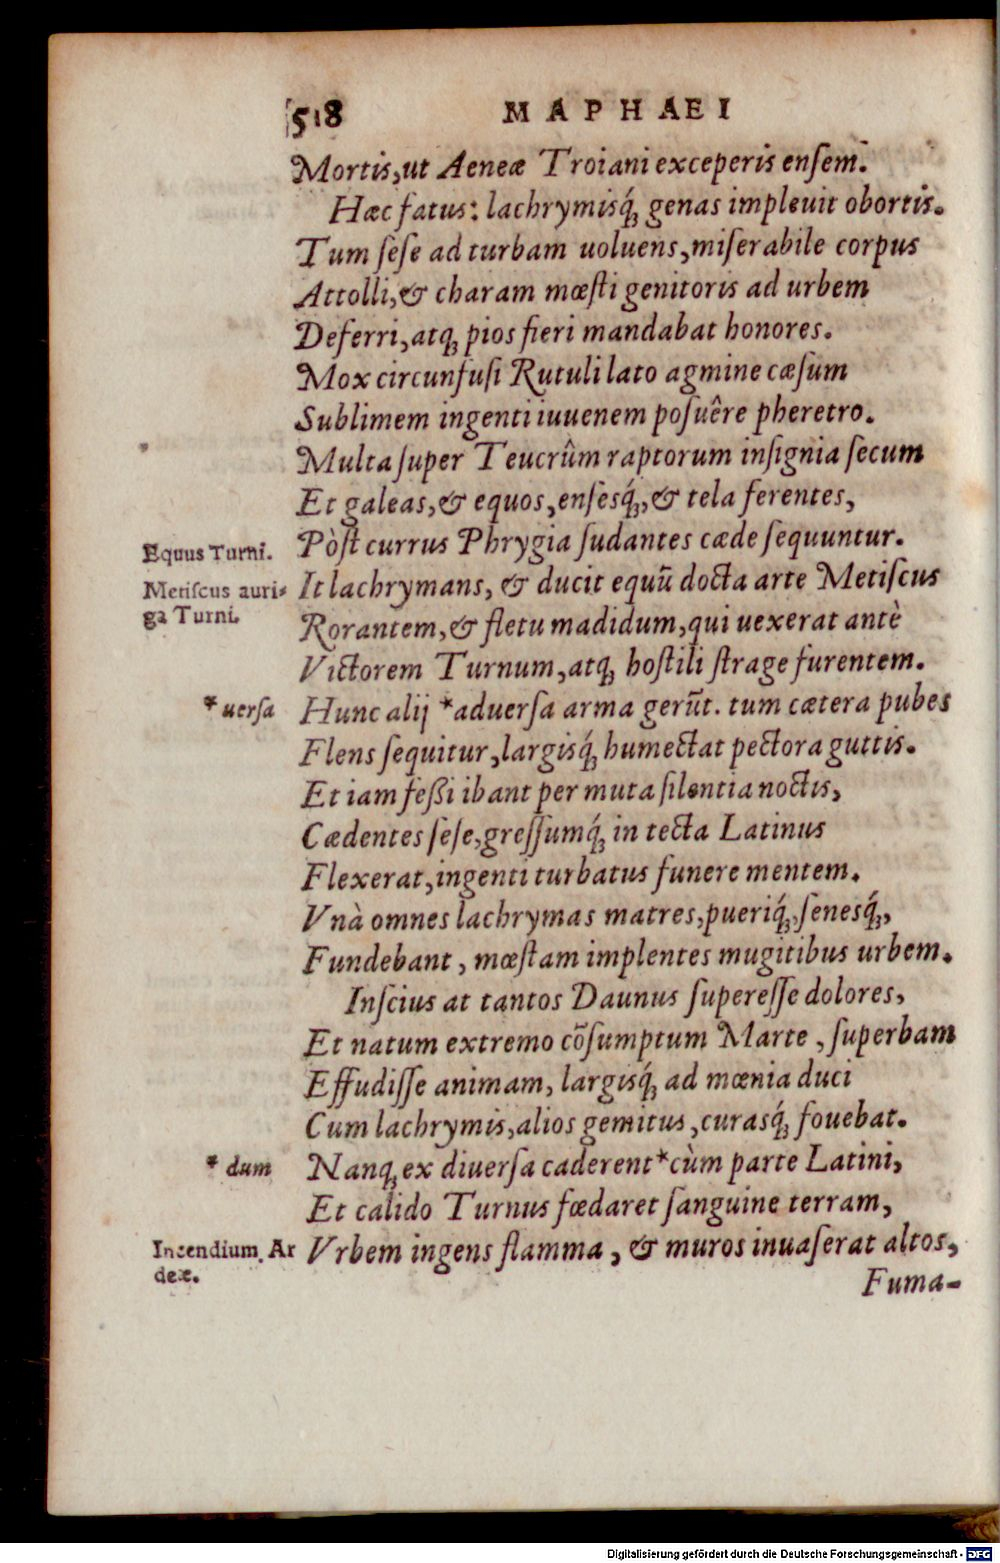 518 MAPHAEI
Mortis, ut Aeneæ Troiani exceperis enſem.
Hæc fatus: lachrymisq́ꝫ genas impleuit obortis.
Tum ſeſe ad turbam uoluens, miſerabile corpus
Attolli, & charam mœſti genitoris ad urbem
Deferri, atqꝫ pios fieri mandabat honores.
Mox circunfuſi Rutuli lato agmine cæſum
Sublimem ingenti iuuenem poſuêre pheretro.
Multa ſuper Teucrûm raptorum inſignia ſecum
Et galeas, & equos, enſesq́ꝫ, & tela ferentes,
Pòſt currus Phrygia ſudantes cæde ſequuntur.
Equus Turni.
It lachrymans, & ducit equū docta arte Metiſcus
Metiſcus auri-
ga Turni.
Rorantem, & fletu madidum, qui uexerat antè
Victorem Turnum, atqꝫ hoſtili ſtrage furentem.
Hunc alij *aduerſa arma gerūt. tum cætera pubes
* uerſa
Flens ſequitur, largisq́ꝫ humectat pectora guttis.
Et iam feßi ibant per muta ſilentia noctis,
Cædentes ſeſe, greſſumq́ꝫ in tecta Latinus
Flexerat, ingenti turbatus funere mentem.
Vnà omnes lachrymas matres, pueriq́ꝫ, ſenesq́ꝫ,
Fundebant, mœſtam implentes mugitibus urbem.
Inſcius at tantos Daunus ſupereſſe dolores,
Et natum extremo cōſumptum Marte, ſuperbam
Effudiſſe animam, largisq́ꝫ ad mœnia duci
Cum lachrymis, alios gemitus, curasq́ꝫ fouebat.
Nanqꝫ ex diuerſa caderent *cùm parte Latini,
* dum
Et calido Turnus fœdaret ſanguine terram,
Vrbem ingens flamma, & muros inuaſerat altos,
Incendium Ar
deæ.
Fuma-
Digitalisierung gefördert durch die Deutsche Forschungsgemeinschaft - DFG